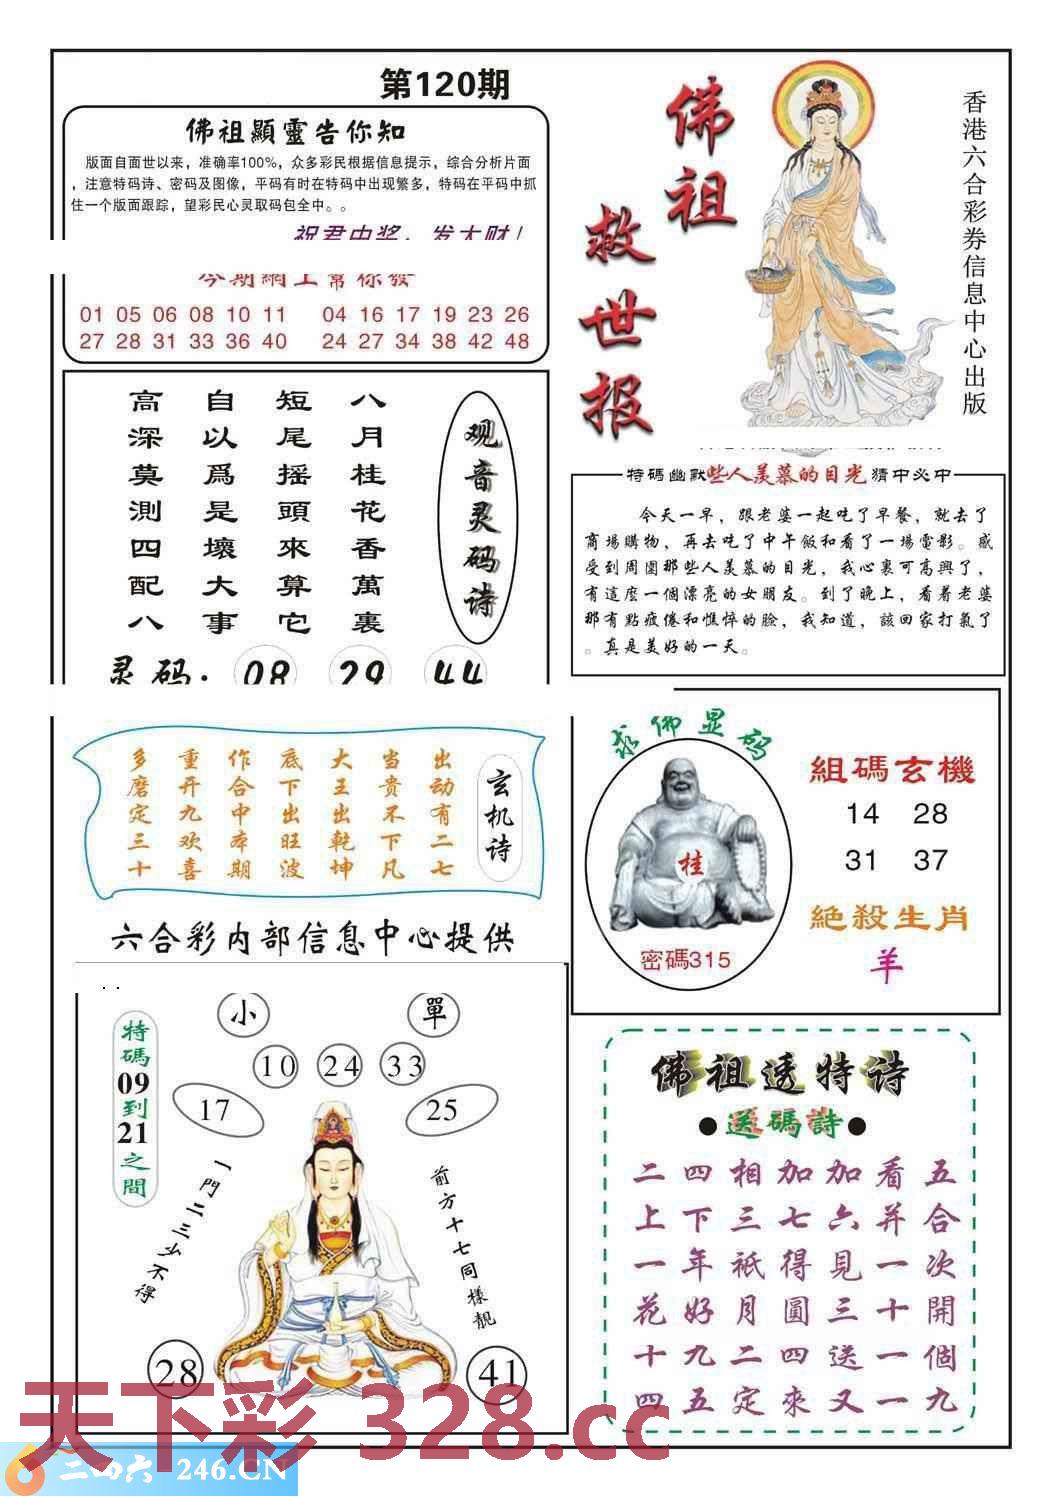 第120期
佛祖顯靈告你知
版面自面世以来，准确率100%，众多彩民根据信息提示，综合分析片面
，注意特码诗、密码及图像，平码有时在特码中出现繁多，特码在平码中抓
住一个版面跟踪，望彩民心灵取码包全中。。
祝君中奖，发大财！
今期網上幫你發
01 05 06 08 10 11 04 16 17 19 23 26
27 28 31 33 36 40 24 27 34 38 42 48
佛祖
救世报
香港六合彩券信息中心出版
观音灵码诗
八月桂花香萬裏
短尾摇頭來算它
自以爲是壞大事
高深莫測四配八
灵码：08 29 44
特码幽默些人羡慕的目光猜中必中
今天一早，跟老婆一起吃了早餐，就去了
商場購物，再去吃了中午飯和看了一場電影。感
受到周圍那些人羡慕的目光，我心裏可高興了，
有這麼一個漂亮的女朋友。到了晚上，看着老婆
那有點疲倦和憔悴的臉，我知道，該回家打氣了
。真是美好的一天。
玄机诗
出动有二七
当贵不下凡
大王出乾坤
底下出旺波
作合中本期
重开九欢喜
多磨定三十
六合彩内部信息中心提供
求佛显码
桂
密碼315
組碼玄機
14 28
31 37
絕殺生肖
羊
小 單
10 24 33
17 25
特碼09到21之間
一門二三少不得
前方十七同樣靓
28 41
佛祖透特诗
●送碼詩●
五合次開個九
看并一十一一
加六見三送又
加七得圓四來
相三祇月二定
四下年好九五
二上一花十四
天下彩 328.cc
二四六 246.CN